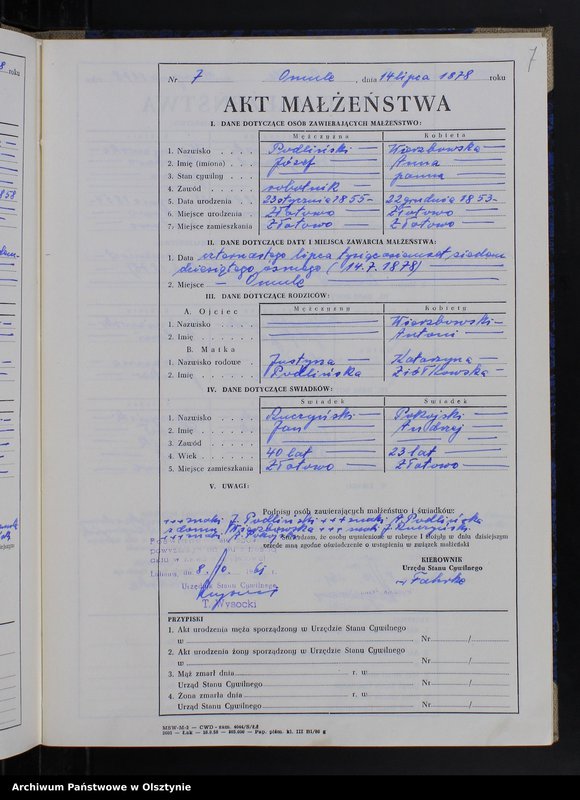 7
Nr 7 Omule , dnia 14 lipca 1878 roku
AKT MAŁŻEŃSTWA
I. DANE DOTYCZĄCE OSÓB ZAWIERAJĄCYCH MAŁŻEŃSTWO:
Mężczyzna Kobieta
1. Nazwisko Podliński Wierzbowska
2. Imię (imiona) Józef Anna
3. Stan cywilny panna
4. Zawód robotnik
5. Data urodzenia 23 stycznia 1855 22 grudnia 1853
6. Miejsce urodzenia Złotowo Złotowo
7. Miejsce zamieszkania Złotowo Złotowo
II. DANE DOTYCZĄCE DATY I MIEJSCA ZAWARCIA MAŁŻEŃSTWA:
1. Data czternastego lipca tysiąc osiemset siedem
dziesiątego ósmego (14.7.1878)
2. Miejsce Omule
III. DANE DOTYCZĄCE RODZICÓW:
Mężczyzny Kobiety
A. Ojciec
1. Nazwisko Wierzbowski
2. Imię Antoni
B. Matka
1. Nazwisko rodowe Justyna Katarzyna
2. Imię Podlińska Ziółkowska
IV. DANE DOTYCZĄCE ŚWIADKÓW:
Świadek Świadek
1. Nazwisko Ruczyński Pokojski
2. Imię Jan Andrzej
3. Zawód
4. Wiek 40 lat 23 lat
5. Miejsce zamieszkania Złotowo Złotowo
V. UWAGI:
Podpisy osób zawierających małżeństwo i świadków:
+++ znaki J. Podliński +++ znaki A. Podlińska
z domu Wierzbowska +++ znaki J. Ruczyński
+++ znaki A. Pokojski
Stwierdzam, że osoby wymienione w rubryce I złożyły w dniu dzisiejszym
w urzędzie mną zgodne oświadczenie o wstąpieniu w związek małżeński
KIEROWNIK
Urzędu Stanu Cywilnego
dn. 8. 10 1961 r.
Urzędnik Stanu Cywilnego
T. Wysocki
PRZYPISKI
1. Akt urodzenia męża sporządzony w Urzędzie Stanu Cywilnego
w Nr /
2. Akt urodzenia żony sporządzony w Urzędzie Stanu Cywilnego
w Nr /
3. Mąż zmarł dnia r. w
Urząd Stanu Cywilnego Nr /
4. Żona zmarła dnia r. w
Urząd Stanu Cywilnego Nr /
Archiwum Państwowe w Olsztynie